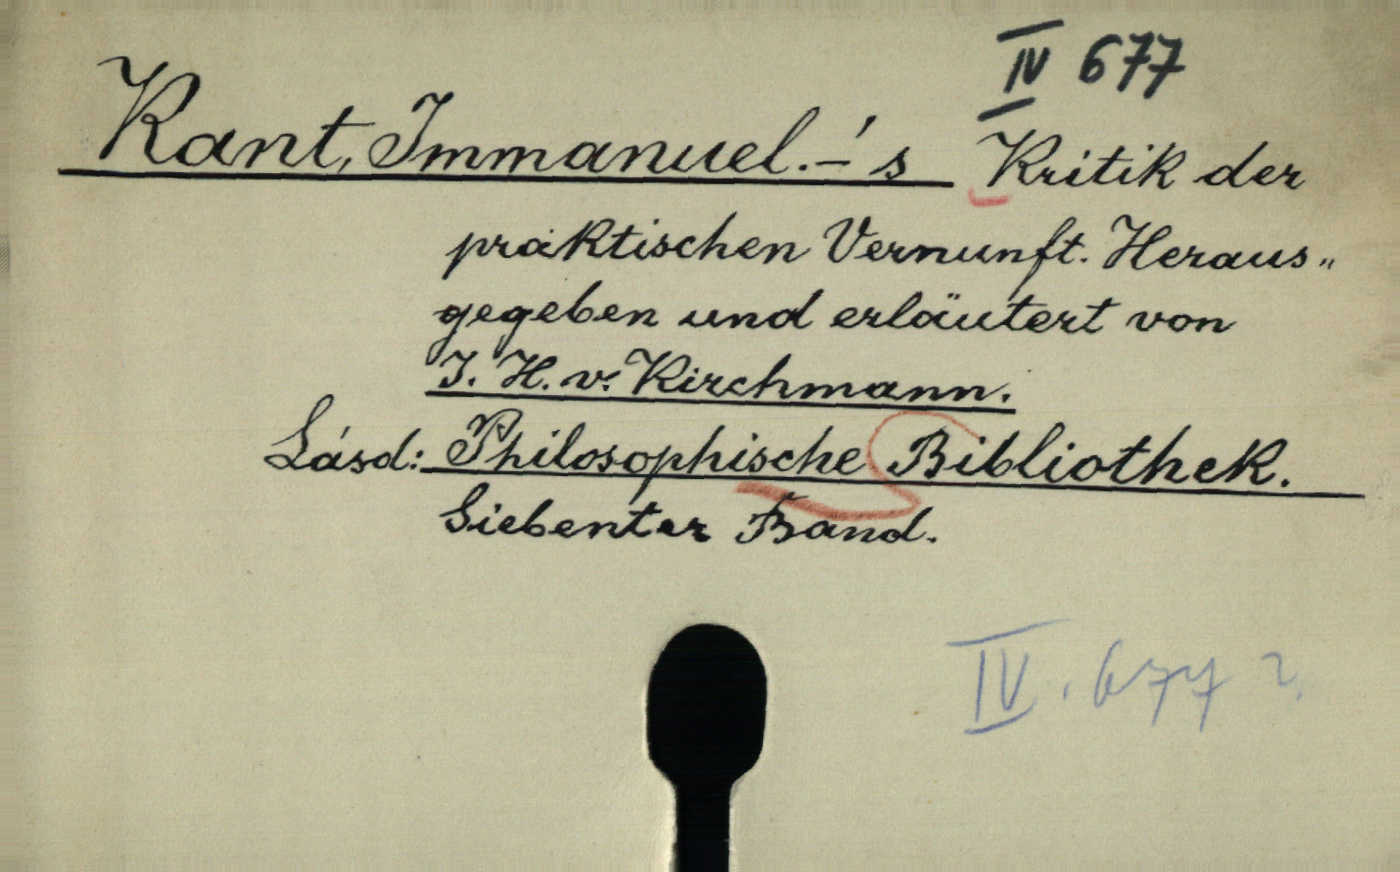 IV 677
Kant, Immanuel.-'s Kritik der
praktischen Vernunft. Heraus„
gegeben und erläutert von
J. H. v. Kirchmann.
Lásd: Philosophische Bibliothek.
Siebenter Band.
IV. 677 2.